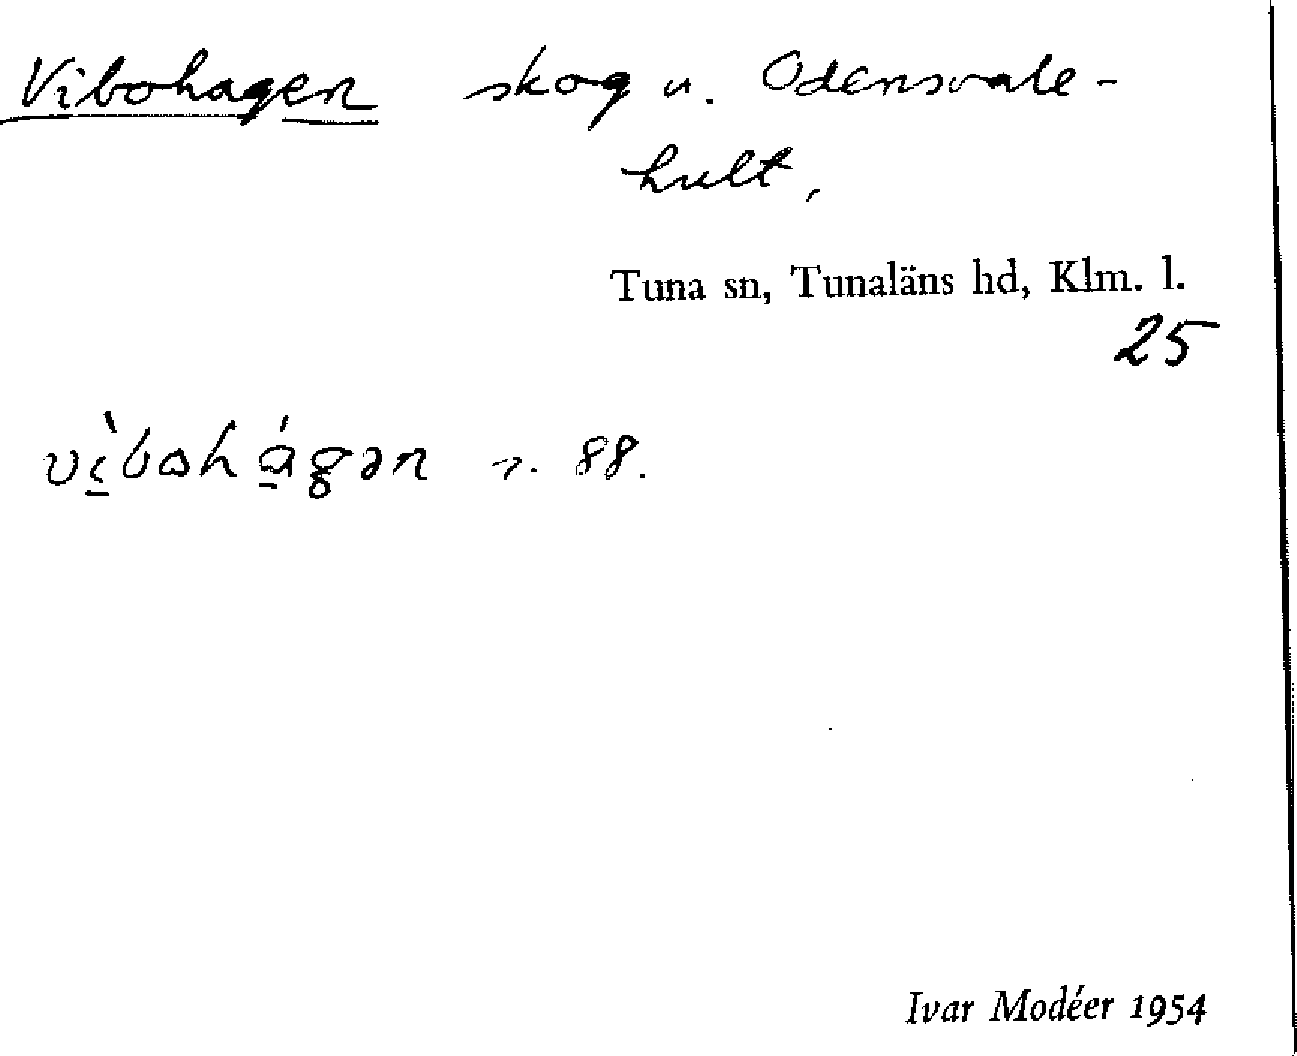 Vibohagen skog u. Odensvale-
hult,
Tuna sn, Tunaläns hd, Klm. l.
25
88.
Ivar Modéer 1954